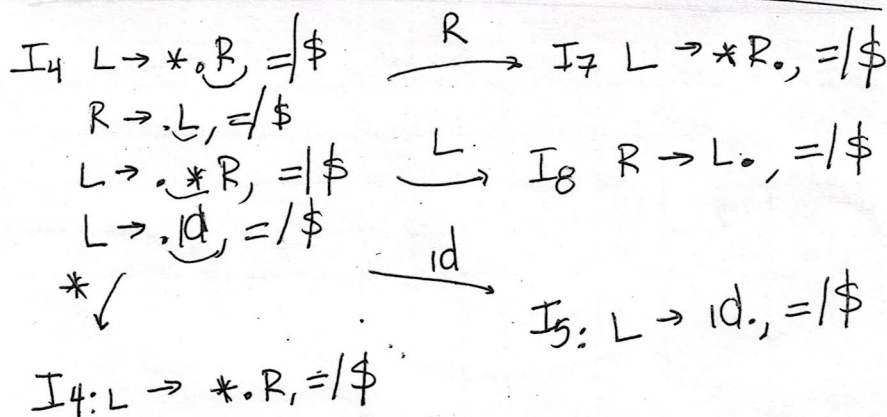 I4 L → *.R, =/$ R → I7 L → *R., =/$
R → .L, =/$
L → .*R, =/$ L → I8 R → L., =/$
L → .id, =/$
* id →
I5: L → id., =/$
I4: L → *.R, =/$